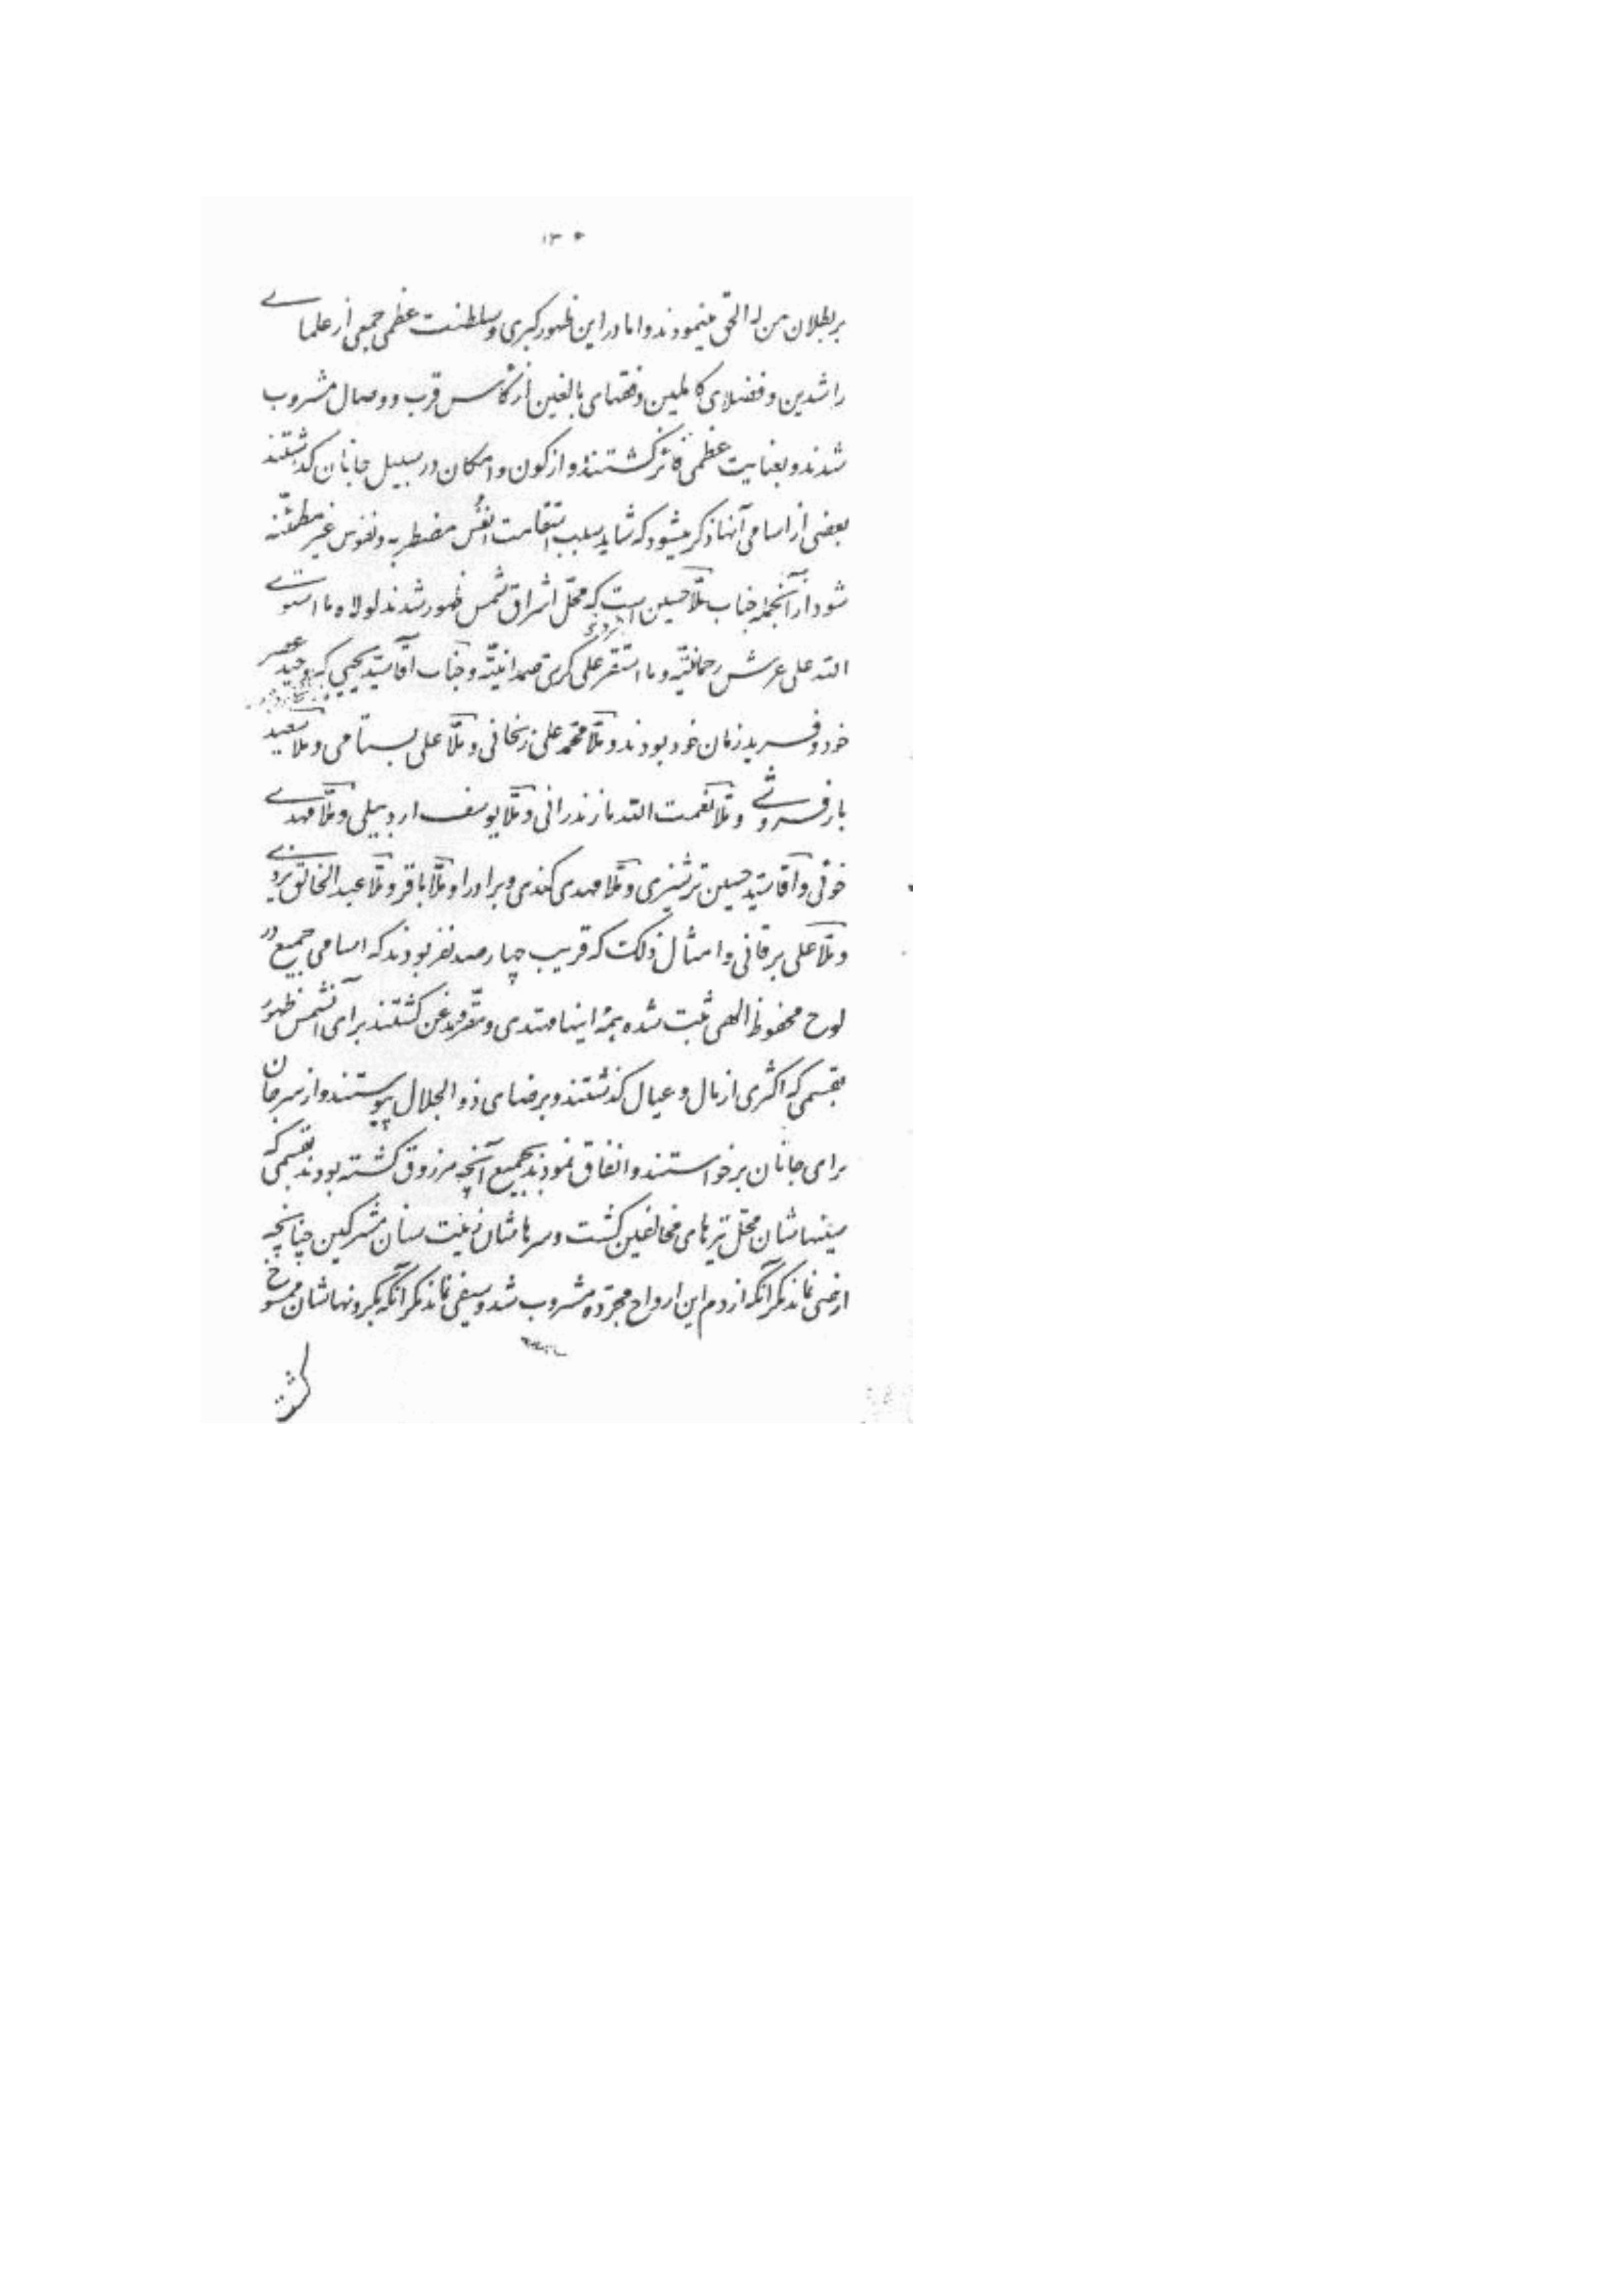 ۱۳۰
بر بطلان من له الحق مینمودند و اما در این ظهور کبری و سلطنت عظمی جمعی از علمای
راشدین و فضلای کاملین و فقهای بالغین از کأس قرب و وصال مشروب
شدند و بعنایت عظمی فائز گشتند و از کون و امکان در سبیل جانان گذشتند
بعضی از اسامی آنها ذکر میشود که شاید سبب استقامت انفس مضطربه و نفوس غیر مطمئنّه
شود از آنجمله جناب ملّا حسین است که محلّ اشراق شمس ظهور شدند لولاه ما استوی
الله علی عرش رحمانیّته و ما استقرّ علی کرسیّ صمدانیّته و جناب آقا سیّد یحیی که وحید عصر
خود و فرید زمان خود بودند و ملّا محمّد علی زنجانی و ملّا علی بسطامی و ملّا سعید
بارفروشی و ملّا نعمت الله مازندرانی و ملّا یوسف اردبیلی و ملّا مهدی
خوئی و آقا سیّد حسین ترشیزی و ملّا مهدی کندی و برادر او ملّا باقر و ملّا عبد الخالق یزدی
و ملّا علی برقانی و امثال ذلک که قریب چهارصد نفر بودند که اسامی جمیع در
لوح محفوظ الهی ثبت شده همهٔ اینها مهتدی و مقرّ و مذعن گشتند برای آنشمس ظهور
بقسمی که اکثری از مال و عیال گذشتند و برضای ذو الجلال پیوستند و از سر جان
برای جانان برخواستند و انفاق نمودند بجمیع آنچه مرزوق گشته بودند بقسمی که
سینهاشان محلّ تیرهای مخالفین گشت و سرهاشان زینت سنان مشرکین چنانچه
ارضی نماند مگر آنکه از دم این ارواح مجرّده مشروب شد و سیفی نماند مگر آنکه بگردنهاشان ممسوح
گشت